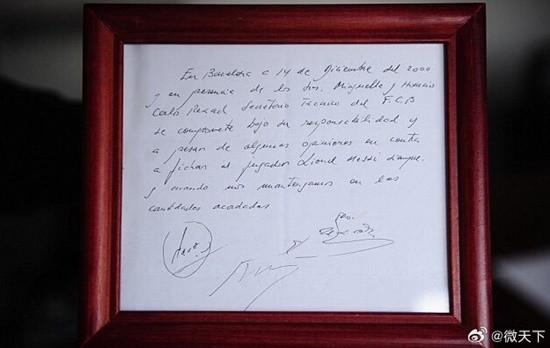 En Barcelona a 14 de Diciembre del 2000
y en presencia de los Srs. Minguella y Horacio
Carlos Rexach Secretario Técnico del F.C.B
se compromete bajo su responsabilidad y
a pesar de algunas opiniones en contra
a fichar al jugador Lionel Messi siempre
y cuando nos mantengamos en las
cantidades acordadas.
@微天下